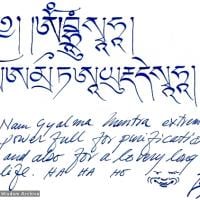 ༡) །ཨོཾ་བྷྲཱུྃ་སྭཱ་ཧཱ
།ཨ་མྲྀ་ཏ་ཨཱ་ཡུརྡ་དེ་སྭཱ་ཧཱ
Nam Gyalma Mentra extrem
power full for purificatio
and also for a lo very long
life. HA HA HO
Wisdom Archive